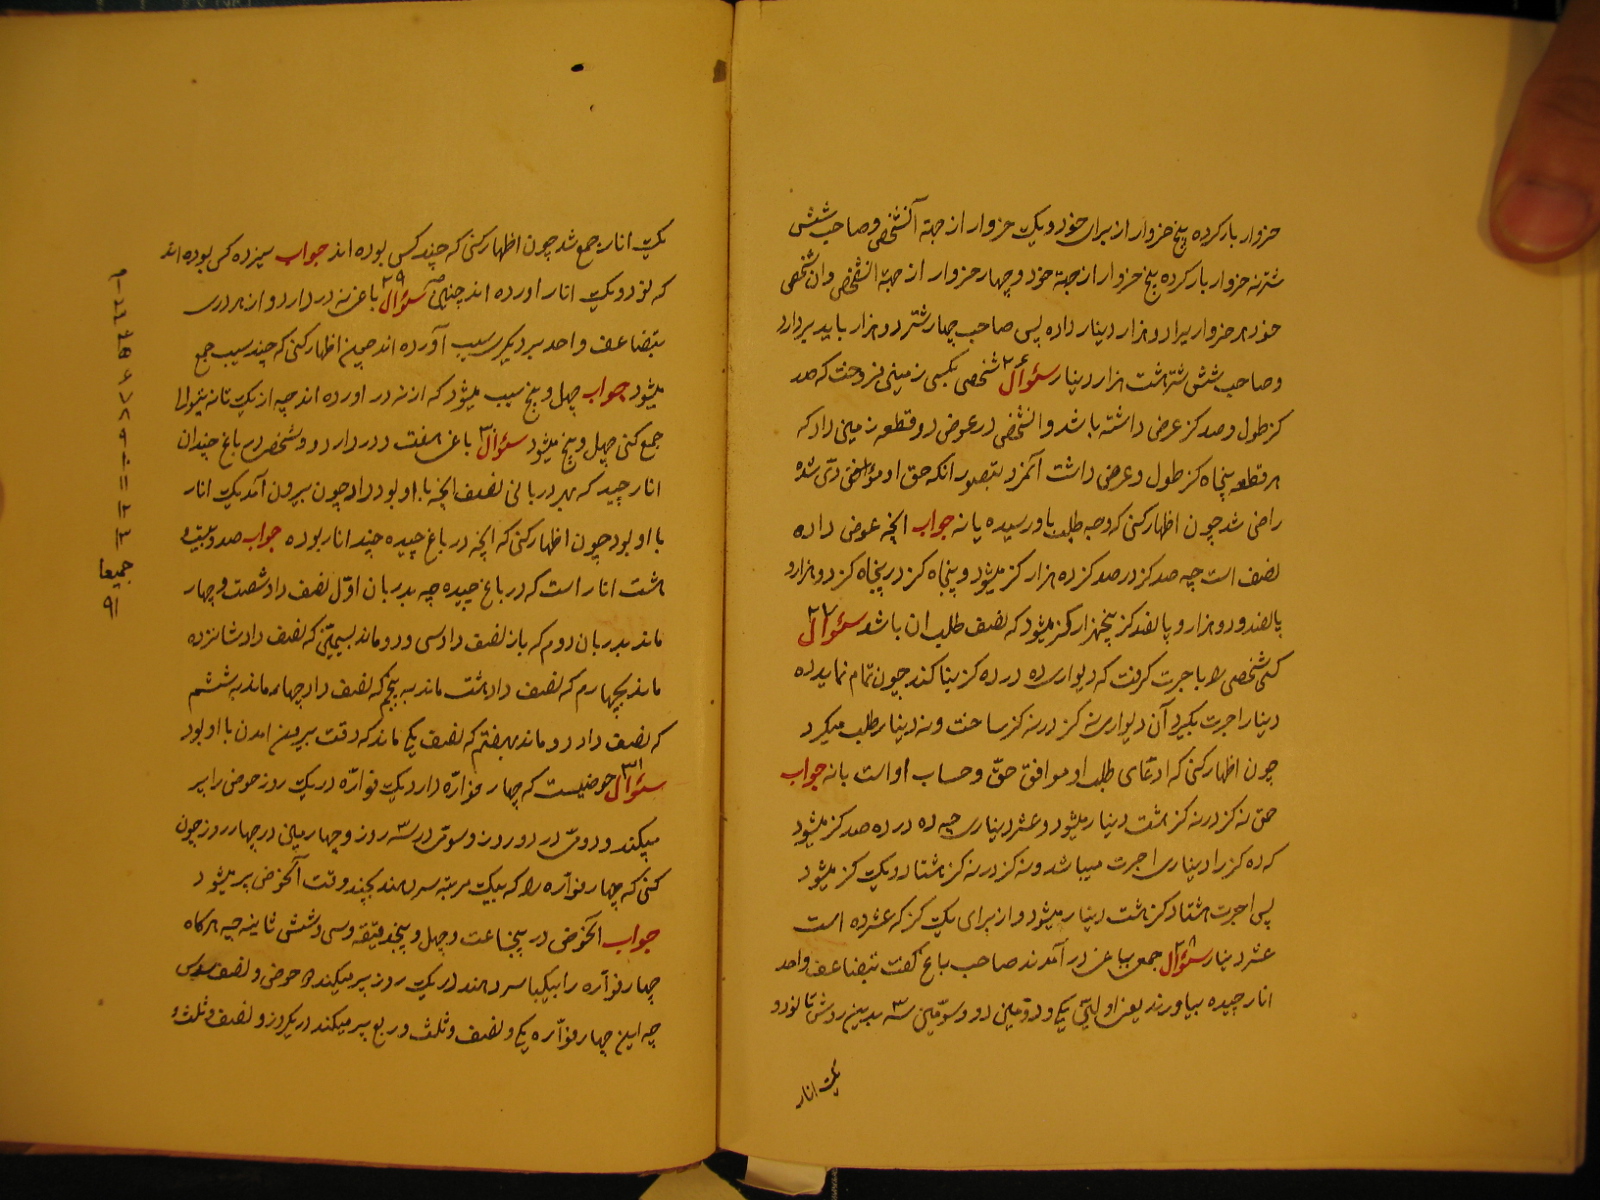 خروار بار کرده پنج خروار از برای خود و یک خروار از جهة آنشخص و صاحب شش
شتر نه خروار بار کرده پنج خروار از جهة خود و چهار خروار از جهة الشخص و ان شخص
خود هر خروار برا دو هزار دینار داده پس صاحب چهار شتر دو هزار باید بردارد
و صاحب شش شتر هشت هزار دینار سئوال ۲۶ شخصی بکسی زمینی فروخت که صد
کز طول و صد کز عرض داشته باشد و انشخص در عوض دو قطعه زمینی داد که
هر قطعه پنجاه کز طول و عرض داشت آنمرد بتصور انکه حق او
راضی شد چون اظهار کنی که وجه طلب باو رسیده یا نه جواب انچه عوض داده
نصف است چه صد کز در صد کز ده هزار کز میشود و پنجاه کز در پنجاه کز دو هزار و
پانصد و دو هزار و پانصد کز پنجهزار کز میشود که نصف طلب ان باشد سئوال ۲۷
کسی شخصی را باجرت کرفت که دیواری ده در ده کز بنا کند چون تمام نماید ده
دینار اجرت بگیرد آن دیواری نه کز در نه کز ساخت و نه دینار طلب میکرد
چون اظهار کنی که ادعای طلب او موافق حق و حساب او است یا نه جواب
حق نه کز در نه کز هشت دینار میشود و عشر دیناری چه ده در ده صد کز میشود
که ده کز را دیناری اجرت میباشد و نه کز در نه کز هشتاد و یک کز میشود
پس اجرت هشتاد کز هشت دینار میشود و از برای یک کز که عشر ده است
عشر دینار سئوال ۲۸ جمعی بباغی در آمدند صاحب باغ کفت بتضاعف واحد
انار چیده بیاورند یعنی اولین یکی و دومین دو و سومین سه بدین روش تا نود و
یک انار
یک انار جمع شد چون اظهار کنی که چند کس بوده اند جواب سیزده کس بوده اند
که نود و یک انار اورده اند چنین سئوال ۲۹ باغی نه در دارد و از هر دری
بتضاعف واحد بر دیگر سیب آورده اند چون اظهار کنی که چند سیب جمع
میشود جواب چهل و پنج سیب میشود که از نه در اورده اند چه از یک تا نه
جمع کنی چهل و پنج میشود سئوال ۳۰ باغی هفت در دارد و شخص در باغ چندان
انار چید که بهر دربانی نصف انچه با او بود داد چون بیرون آمد یک انار
با او بود چون اظهار کنی که انچه در باغ چیده چند انار بوده جواب صد و بیست و
هشت انار است که در باغ چیده چه بدربان اول نصف داد شصت و چهار
ماند بدربان دوم که باز نصف داد سی و دو ماند بسیمین که نصف داد شانزده
ماند بچهارم که نصف داد هشت ماند به پنجم که نصف داد چهار ماند به ششم
که نصف داد دو ماند بهفتم که نصف یکی ماند که وقت بیرون امدن با او بود
سئوال ۳۱ حوضیست که چهار فواره دارد یک فواره در یک روز حوض را پر
میکند و دومی در دو روز و سومی در سه روز و چهارمین در چهار روز چون
کنی که چهار فواره را که بیک مرتبه سر دهند بچند وقت آنحوض پر میشود
جواب انحوض در پنجساعت و چهل و پنجدقیقه و سی و شش ثانیه چه هرگاه
چهار فواره را بیکبار سر دهند در یک روز پر میکند دو حوض و نصف سدس
چه این چهار فواره یکی و نصف و ثلث و ربع پر میکند در یکروز و نصف و ثلث و
۱ ۲ ۳ ۴ ۵ ۶ ۷ ۸ ۹ ۱۰ ۱۱ ۱۲ ۱۳ جمیعا ۹۱